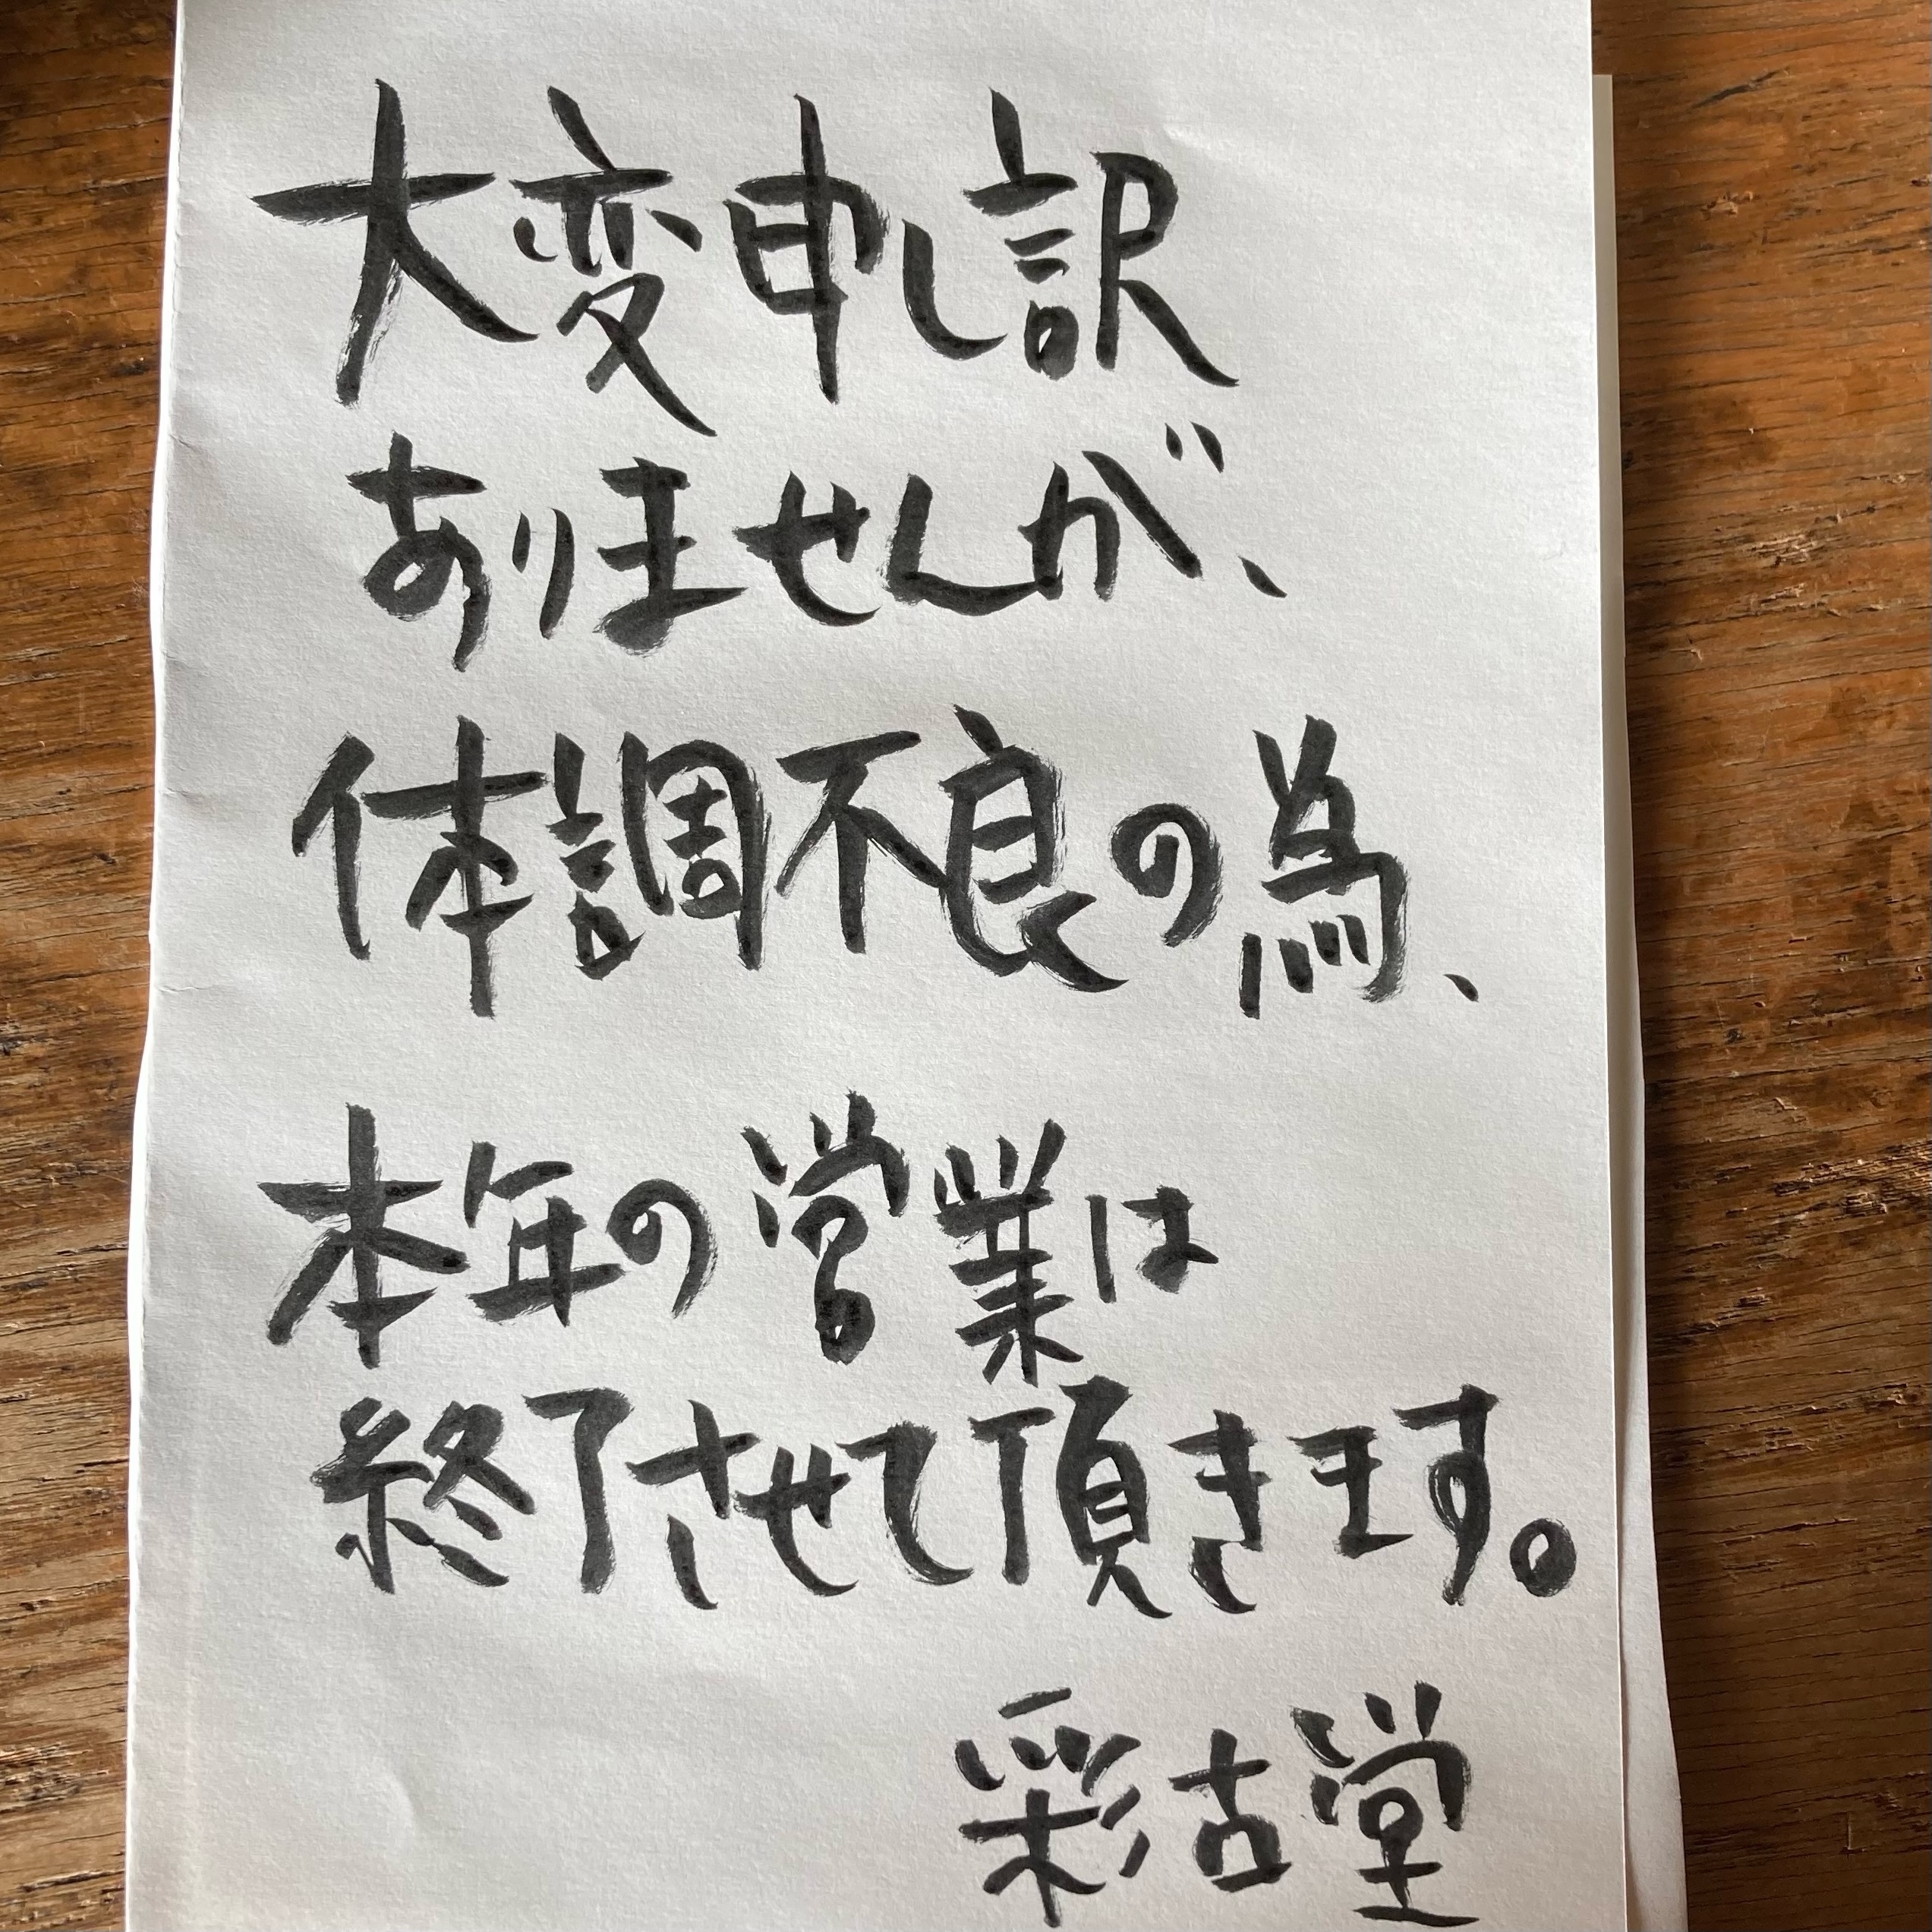 大変申し訳
ありませんが、
体調不良の為、
本年の営業は
終了させて頂きます。
彩古堂